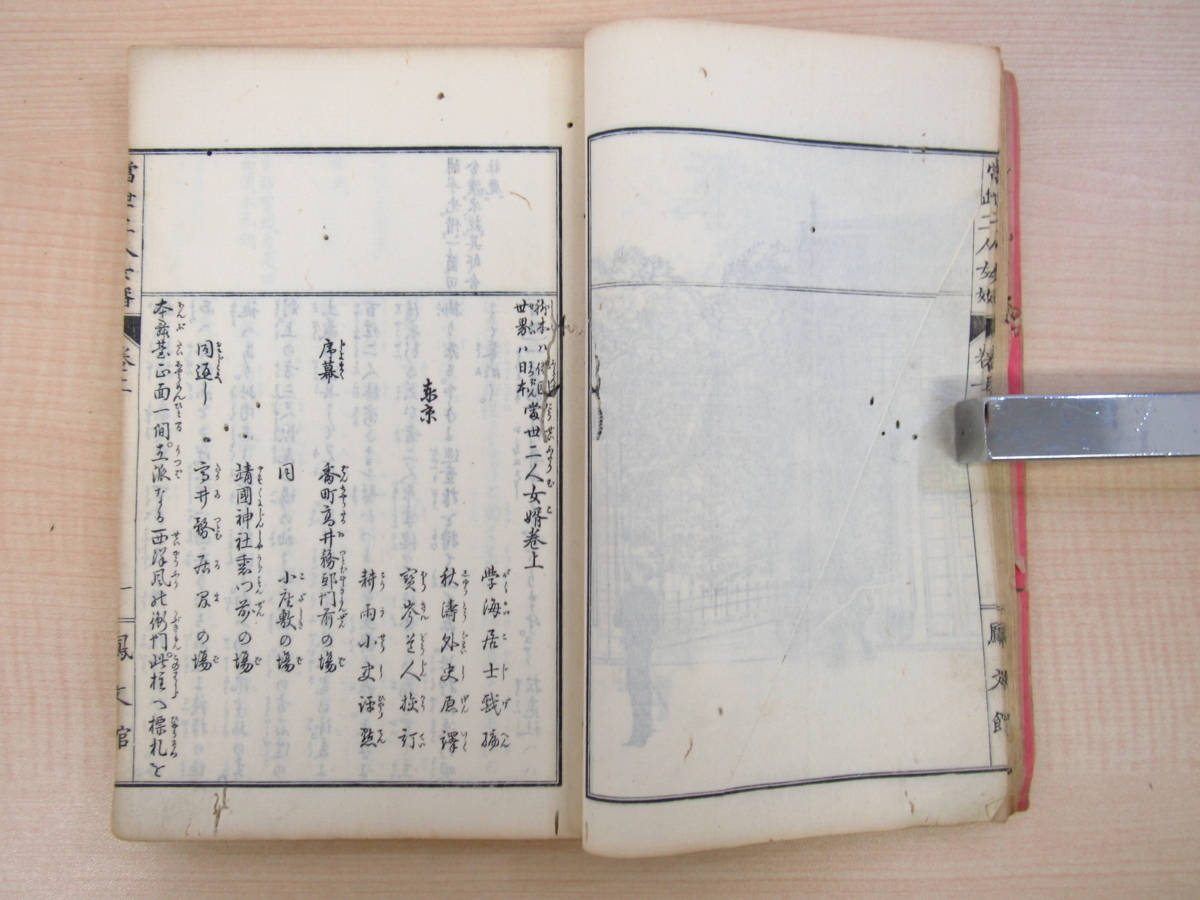 當世二人女婿
鳳文館
脚本ハ佛国
世界ハ日本
當世二人女婿卷上
學海居士戲編
秋濤外史原譯
東京
寶岑道人挍訂
耕雨小史評點
序幕
番町高井務邸門前の場
同
小座敷の場
靖國神社裏門前の場
同返し
高井務居間の場
本舞臺正面一間立派なる西洋風の御門此柱へ標札を
當世二人女婿
卷上
一
鳳文館